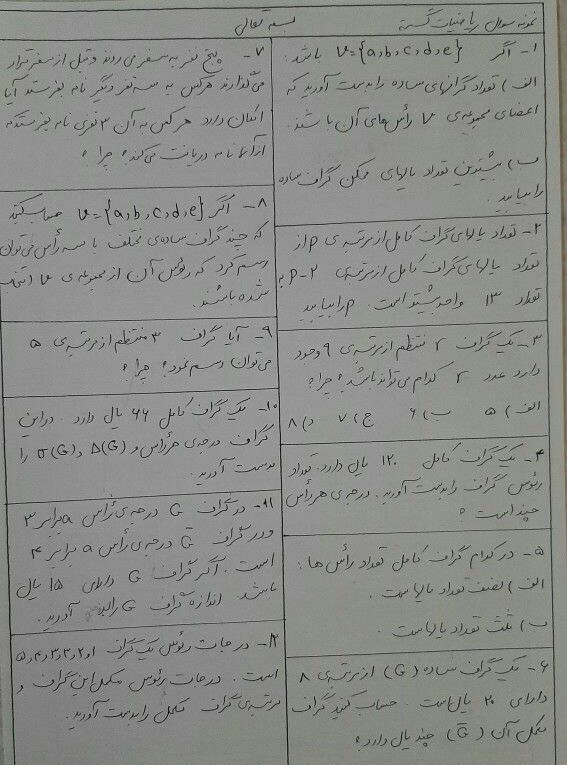 بسمه تعالی
نمونه سوال ریاضیات گسسته
۱- اگر V={a,b,c,d,e} باشد:
الف) تعداد گرافهای ساده را بدست آورید که
اعضای مجموعه‌ی V رأس‌های آن باشند.
ب) بیشترین تعداد یالهای ممکن گراف ساده
را بیابید.
۲- تعداد یالهای گراف کامل از مرتبه‌ی P از
تعداد یالهای گراف کامل از مرتبه‌ی P-2 به
تعداد ۱۳ واحد بیشتر است. P را بیابید
۳- یک گراف r منتظم از مرتبه‌ی ۹ وجود
دارد عدد r کدام می‌تواند باشد؟ چرا؟
الف) ۵ ب) ۶ ج) ۷ د) ۸
۴- یک گراف کامل ۱۲۰ یال دارد. تعداد
رئوس گراف را بدست آورید. درجه‌ی هر رأس
چند است؟
۵- در کدام گراف کامل تعداد رأس ها:
الف) نصف تعداد یالهاست.
ب) ثلث تعداد یالهاست.
۶- یک گراف ساده (G) از مرتبه‌ی ۸
دارای ۲۰ یال است. حساب کنید گراف
مکمل آن (G̅) چند یال دارد؟
۷- پنج نفر به سفر می روند و قبل از سفر قرار
می‌گذارند هرکس به سه نفر دیگر نامه بفرستد آیا
امکان دارد هرکس به آن ۳ نفری نامه بفرستد که
از آنها نامه دریافت می‌کند؟ چرا؟
۸- اگر V={a,b,c,d,e} حساب کنید
که چند گراف ساده‌ی مختلف با سه رأس می‌توان
رسم کرد که رئوس آن از مجموعه‌ی V انتخاب
شده باشند.
۹- آیا گراف ۳ منتظم از مرتبه‌ی ۵
می‌توان رسم نمود؟ چرا؟
۱۰- یک گراف کامل ۶۶ یال دارد. در این
گراف درجه‌ی هر رأس و Δ(G) و δ(G) را
بدست آورید.
۱۱- در گراف G درجه‌ی رأس a برابر ۳
و در گراف G̅ درجه‌ی رأس a برابر ۴
است. اگر گراف G دارای ۱۵ یال
باشد اندازه گراف G̅ را بدست آورید.
۱۲- درجات رئوس یک گراف ۱و۲و۲و۳و۳و۴و۵
است. درجات رئوس مکمل این گراف و
مرتبه‌ی گراف مکمل را بدست آورید.